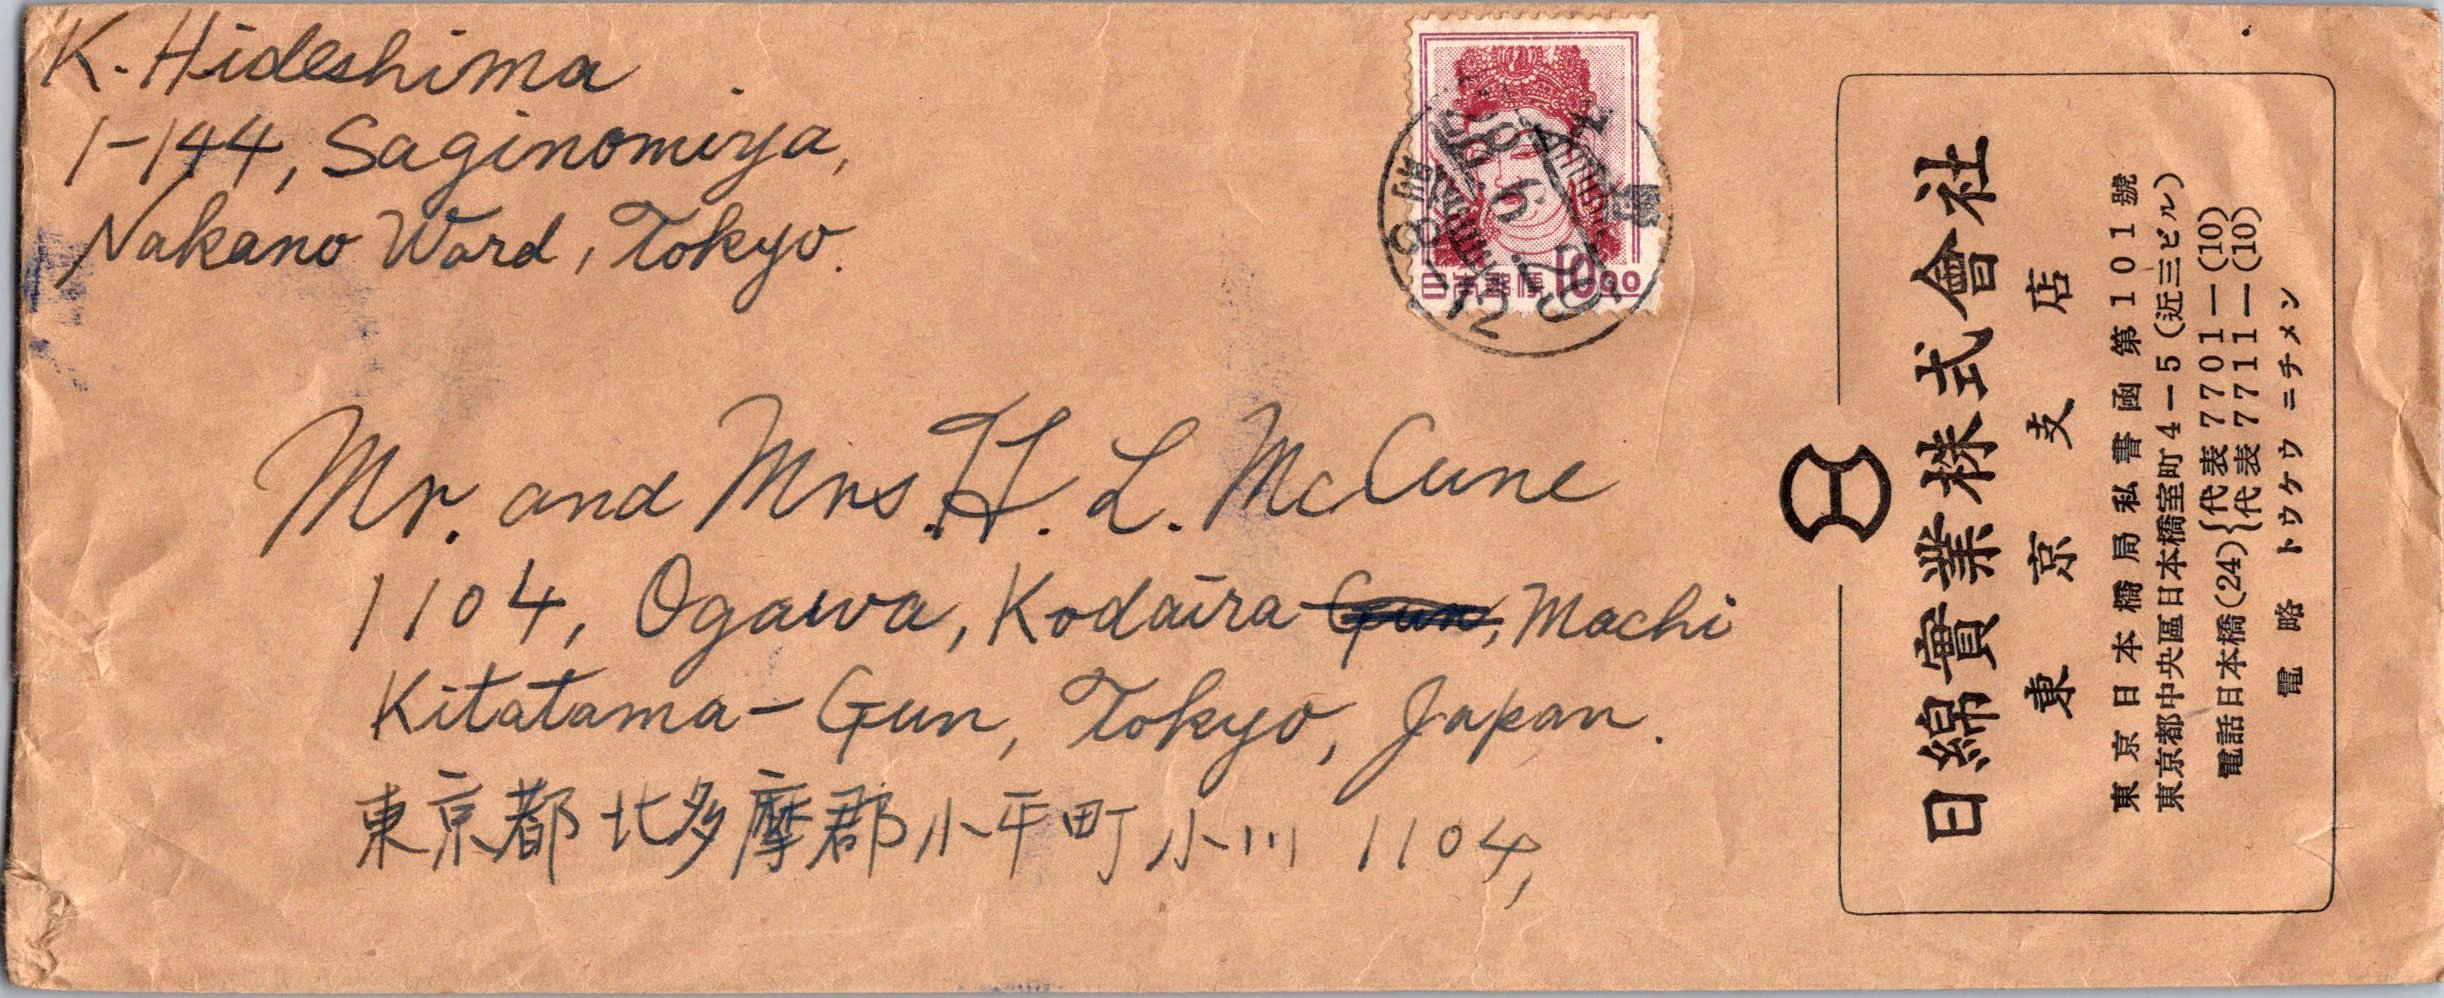 K. Hideshima
1-144, Saginomiya,
Nakano Ward, Tokyo.
日本郵便 10.00
8-12
Mr. and Mrs. H. L. McCune
1104, Ogawa, Kodaira Gun, Machi
Kitatama-Gun, Tokyo, Japan.
東京都北多摩郡小平町小川 1104,
日綿實業株式會社
東京支店
東京日本橋局私書函第1101號
東京都中央區日本橋室町4-5(近三ビル)
電話日本橋(24){代表7701—(10)
{代表7711—(10)
電略 トウケウ ニチメン